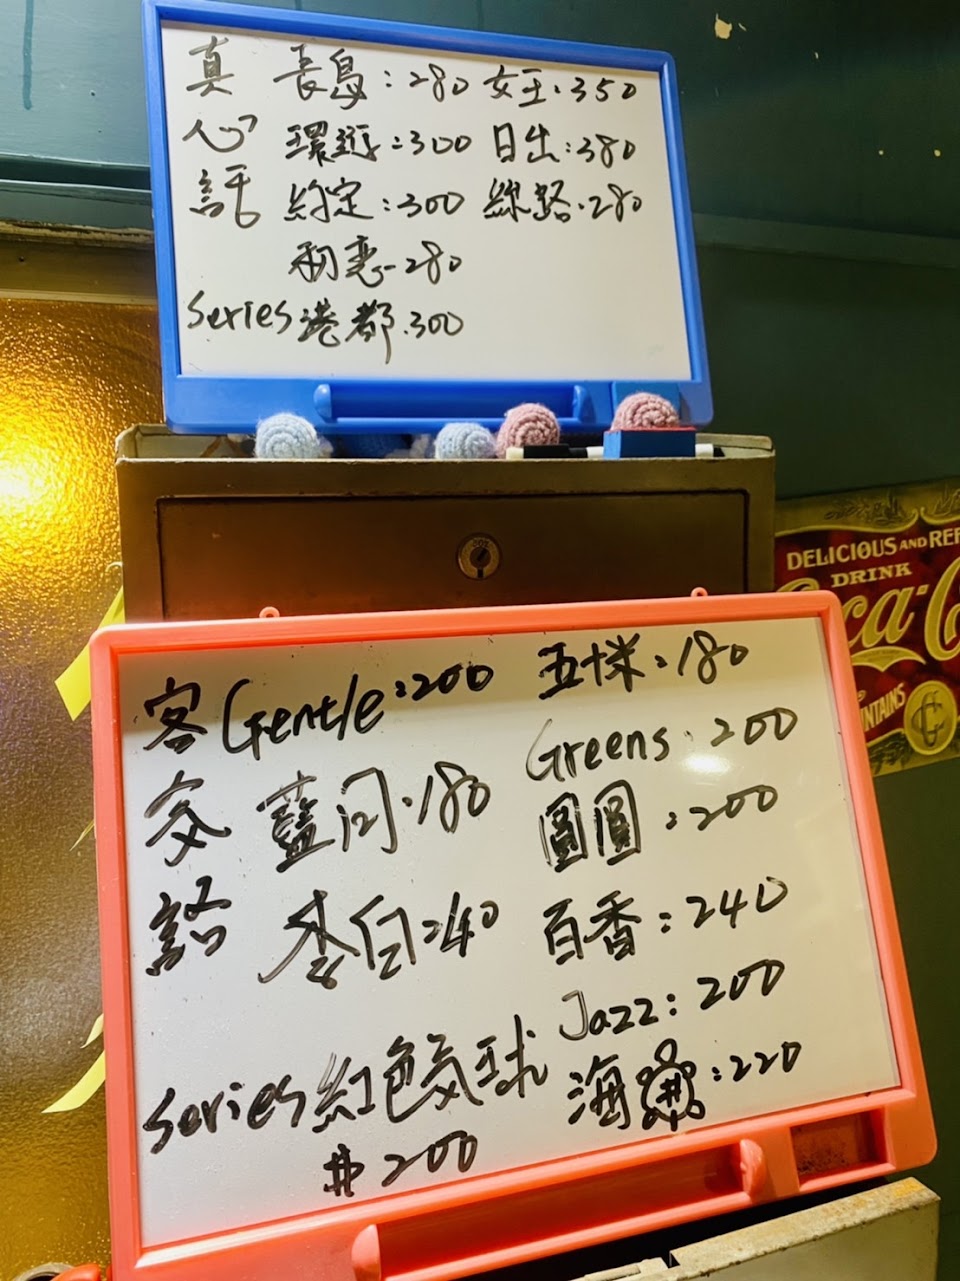 真 長島:280 女王:350
心 環遊:300 日出:380
話 約定:300 絲路:280
初恋-280
Series 港都.300
DELICIOUS AND REF
DRINK
Coca-C
UNTAINS
客 Gentle:200 五十米:180
家 藍閃.180 Greens.200
語 李白:240 圓圓:200
百香:240
Series 紅色氣球 Jazz:200
#200 海:220